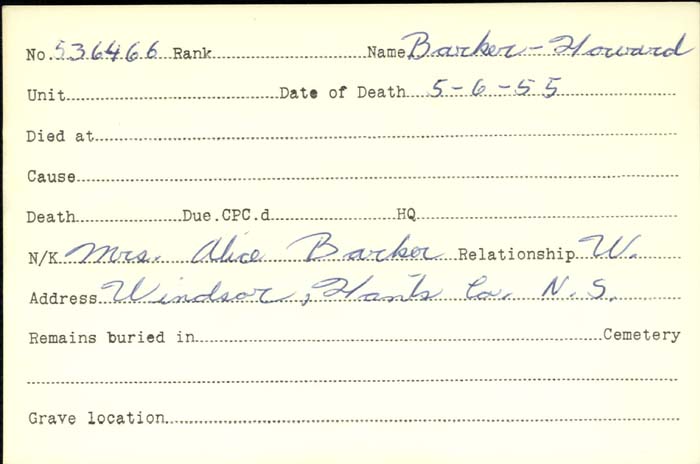 No. 536466 Rank Name Barker - Howard
Unit Date of Death 5-6-55
Died at
Cause
Death Due.CPC.d HQ
N/K Mrs. Alice Barker Relationship W.
Address Windsor, Hants Co. N.S.
Remains buried in Cemetery
Grave location